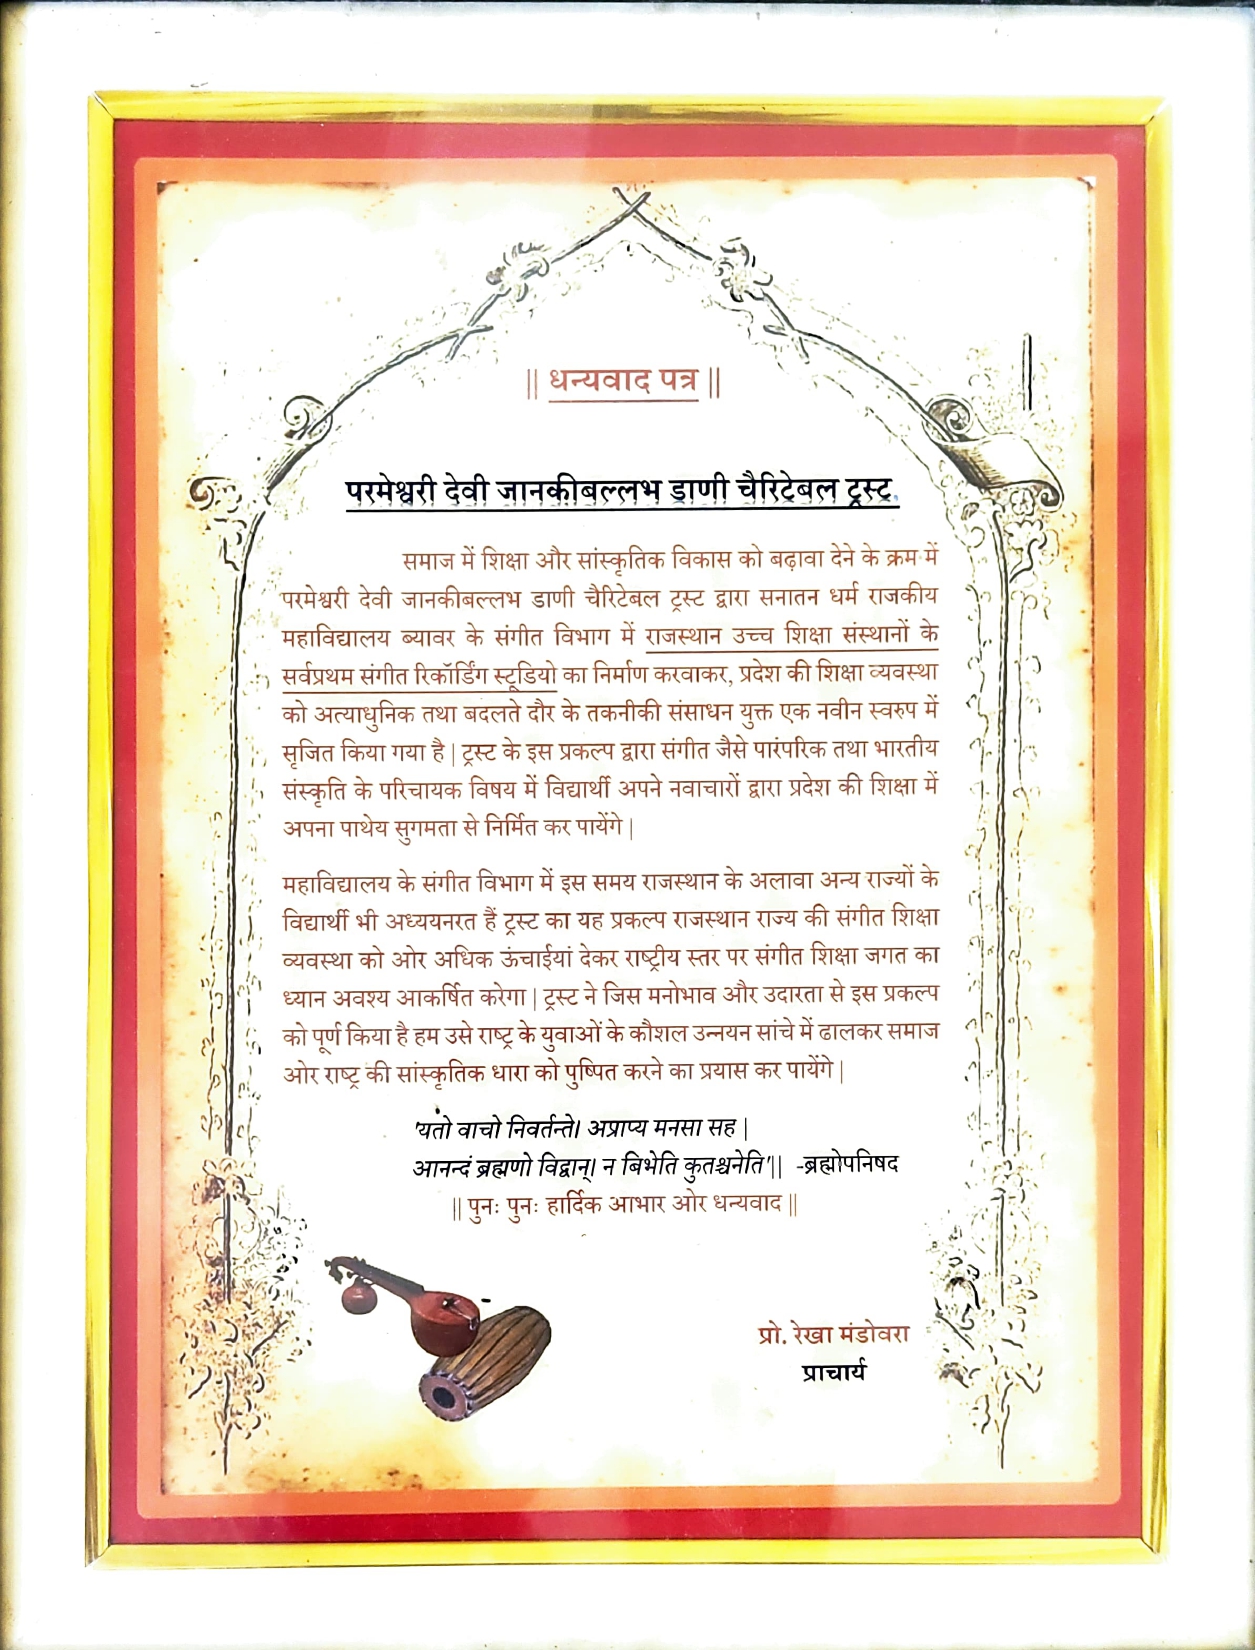 || धन्यवाद पत्र ||
परमेश्वरी देवी जानकीबल्लभ डाणी चैरिटेबल ट्रस्ट
समाज में शिक्षा और सांस्कृतिक विकास को बढ़ावा देने के क्रम में
परमेश्वरी देवी जानकीबल्लभ डाणी चैरिटेबल ट्रस्ट द्वारा सनातन धर्म राजकीय
महाविद्यालय ब्यावर के संगीत विभाग में राजस्थान उच्च शिक्षा संस्थानों के
सर्वप्रथम संगीत रिकॉर्डिंग स्टूडियो का निर्माण करवाकर, प्रदेश की शिक्षा व्यवस्था
को अत्याधुनिक तथा बदलते दौर के तकनीकी संसाधन युक्त एक नवीन स्वरुप में
सृजित किया गया है | ट्रस्ट के इस प्रकल्प द्वारा संगीत जैसे पारंपरिक तथा भारतीय
संस्कृति के परिचायक विषय में विद्यार्थी अपने नवाचारों द्वारा प्रदेश की शिक्षा में
अपना पाथेय सुगमता से निर्मित कर पायेंगे |
महाविद्यालय के संगीत विभाग में इस समय राजस्थान के अलावा अन्य राज्यों के
विद्यार्थी भी अध्ययनरत हैं ट्रस्ट का यह प्रकल्प राजस्थान राज्य की संगीत शिक्षा
व्यवस्था को ओर अधिक ऊंचाईयां देकर राष्ट्रीय स्तर पर संगीत शिक्षा जगत का
ध्यान अवश्य आकर्षित करेगा | ट्रस्ट ने जिस मनोभाव और उदारता से इस प्रकल्प
को पूर्ण किया है हम उसे राष्ट्र के युवाओं के कौशल उन्नयन सांचे में ढालकर समाज
ओर राष्ट्र की सांस्कृतिक धारा को पुष्पित करने का प्रयास कर पायेंगे |
'यतो वाचो निवर्तन्ते। अप्राप्य मनसा सह |
आनन्दं ब्रह्मणो विद्वान्। न बिभेति कुतश्चनेति'|| -ब्रह्मोपनिषद
|| पुनः पुनः हार्दिक आभार ओर धन्यवाद ||
प्रो. रेखा मंडोवरा
प्राचार्य